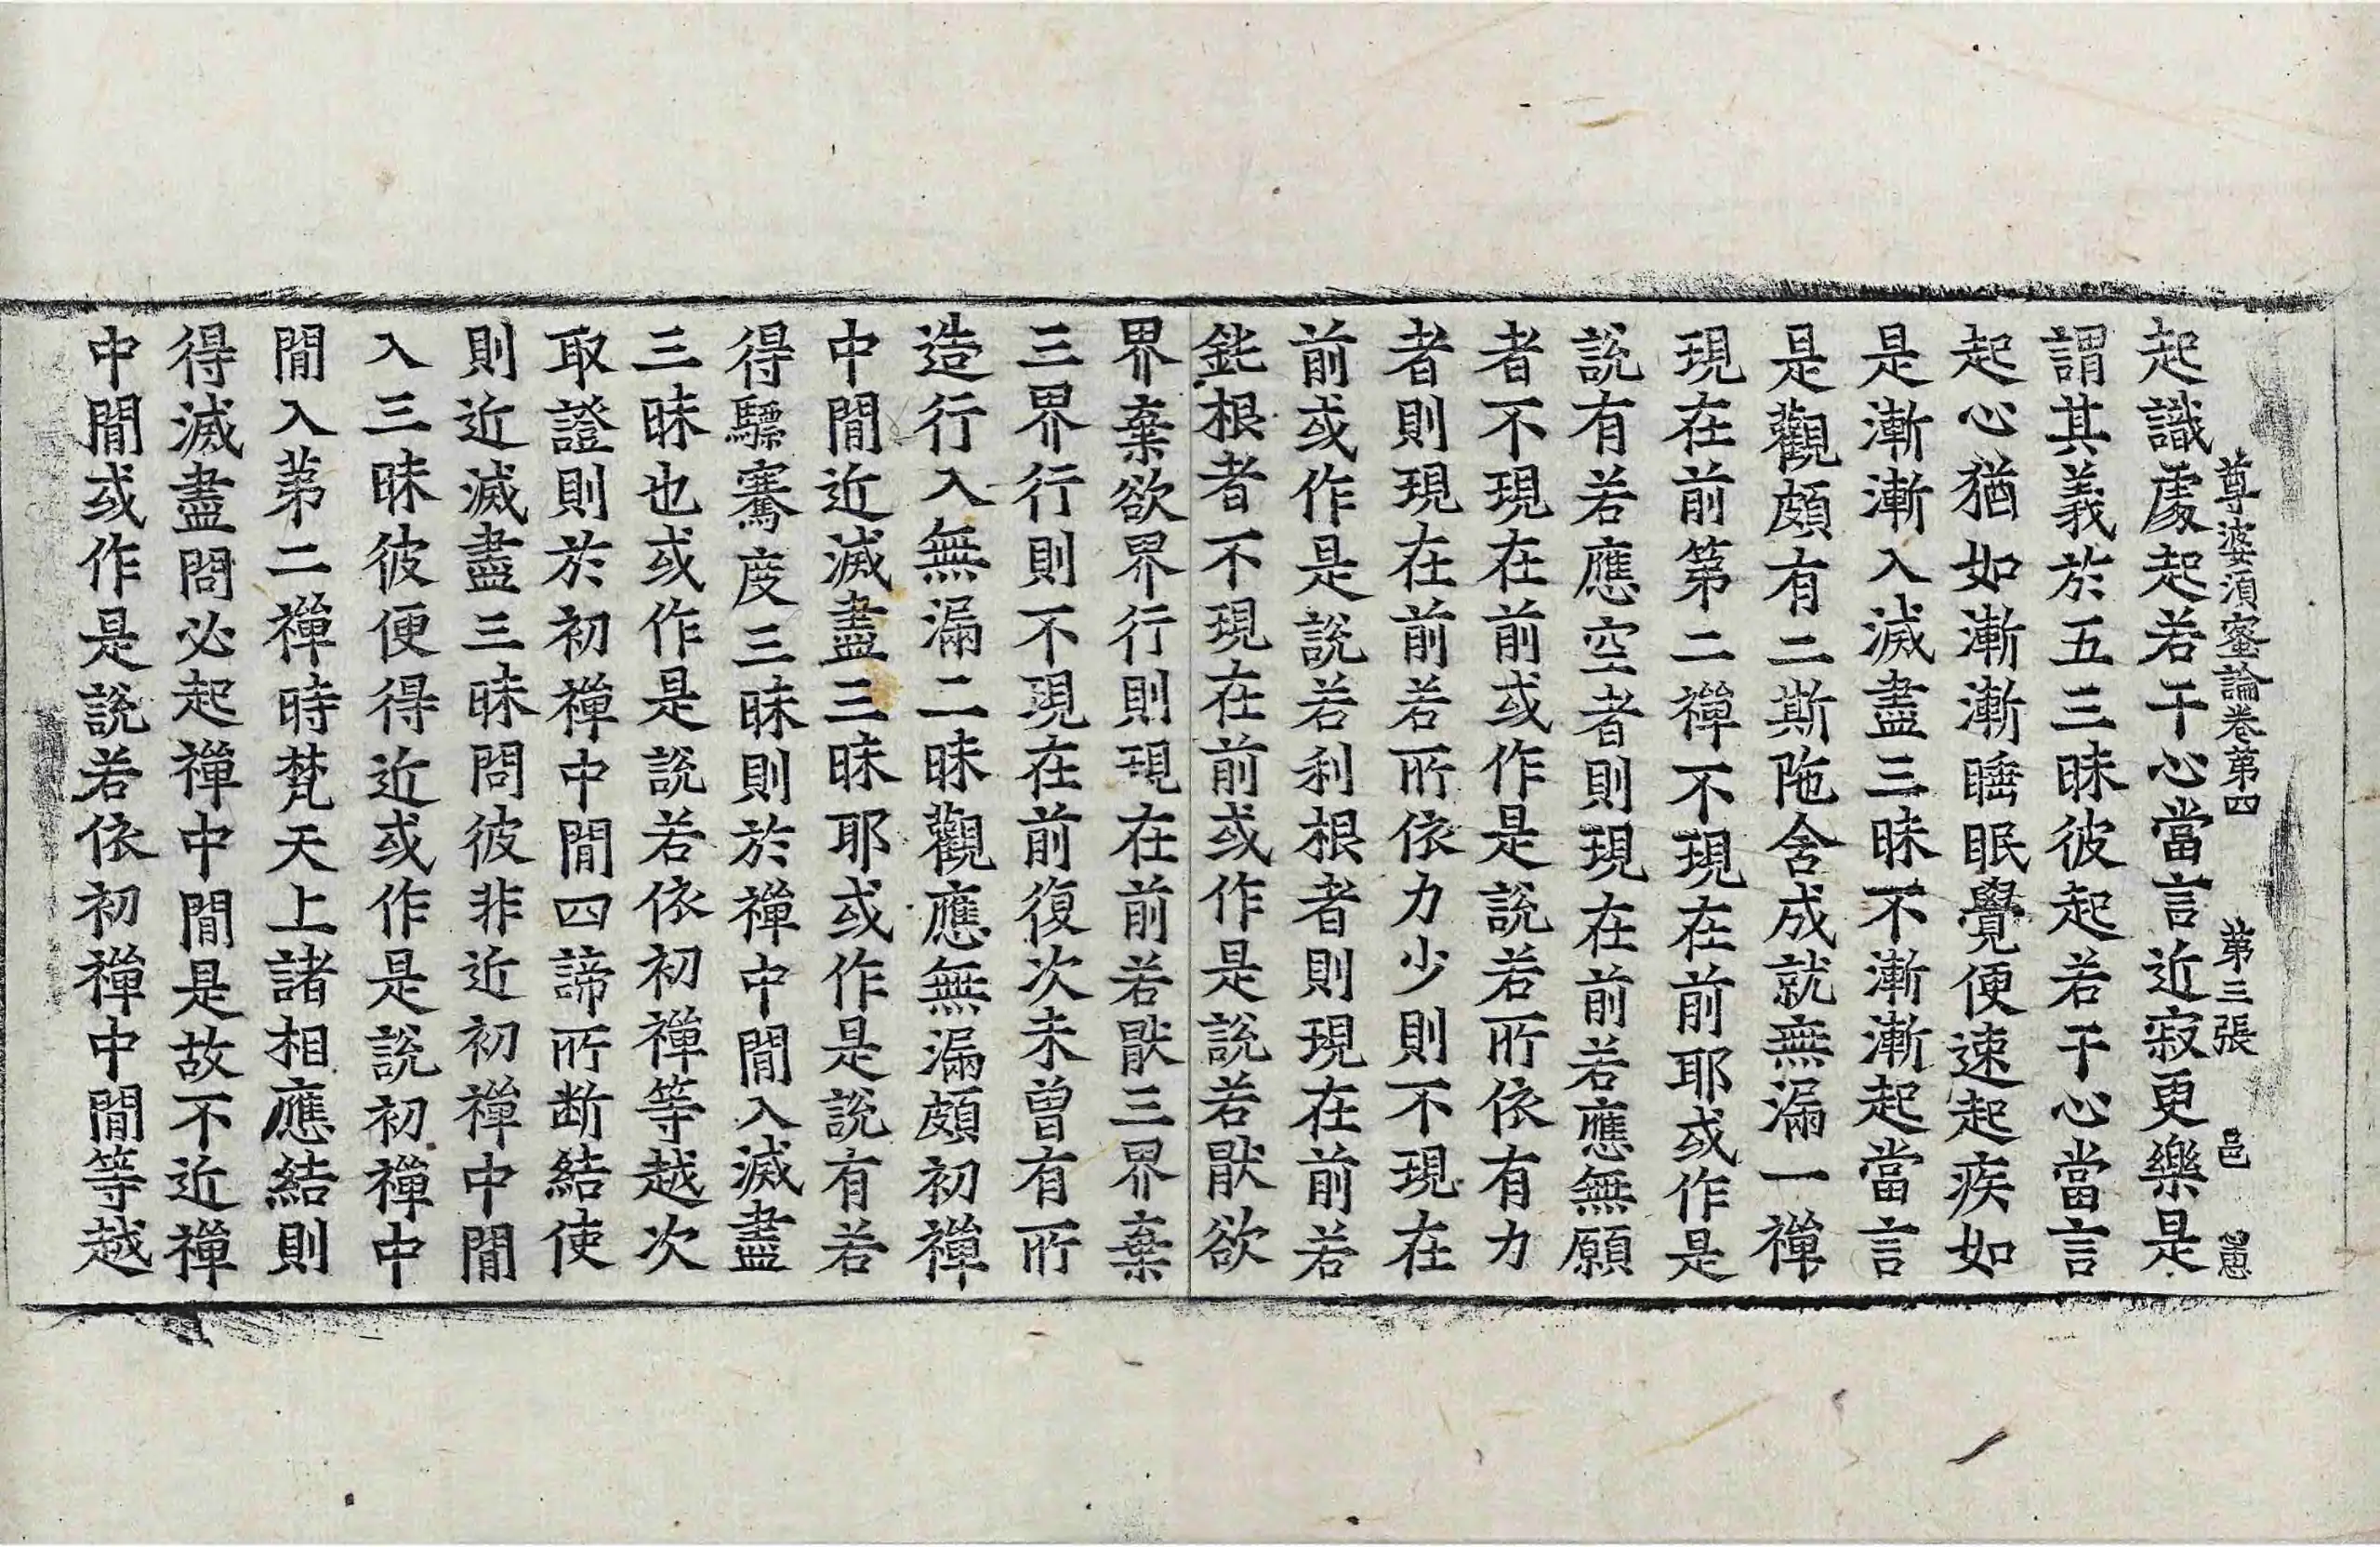 尊婆須蜜論卷第四 第三張 邑
起識處起若干心當言近寂更樂是
謂其義於五三昧彼起若干心當言
起心猶如漸漸睡眠覺便速起疾如
是漸漸入滅盡三昧不漸漸起當言
是觀頗有二斯陁含成就無漏一禪
現在前第二禪不現在前耶或作是
說有若應空者則現在前若應無願
者不現在前或作是說若所依有力
者則現在前若所依力少則不現在
前或作是說若利根者則現在前若
鈍根者不現在前或作是說若猒欲
界棄欲界行則現在前若猒三界棄
三界行則不現在前復次未曾有所
造行入無漏二昧觀應無漏頗初禪
中閒近滅盡三昧耶或作是說有若
得驃騫度三昧則於禪中閒入滅盡
三昧也或作是說若依初禪等越次
取證則於初禪中閒四諦所断結使
則近滅盡三昧問彼非近初禪中閒
入三昧彼便得近或作是說初禪中
閒入第二禪時梵天上諸相應結則
得滅盡問必起禪中閒是故不近禪
中閒或作是說若依初禪中閒等越